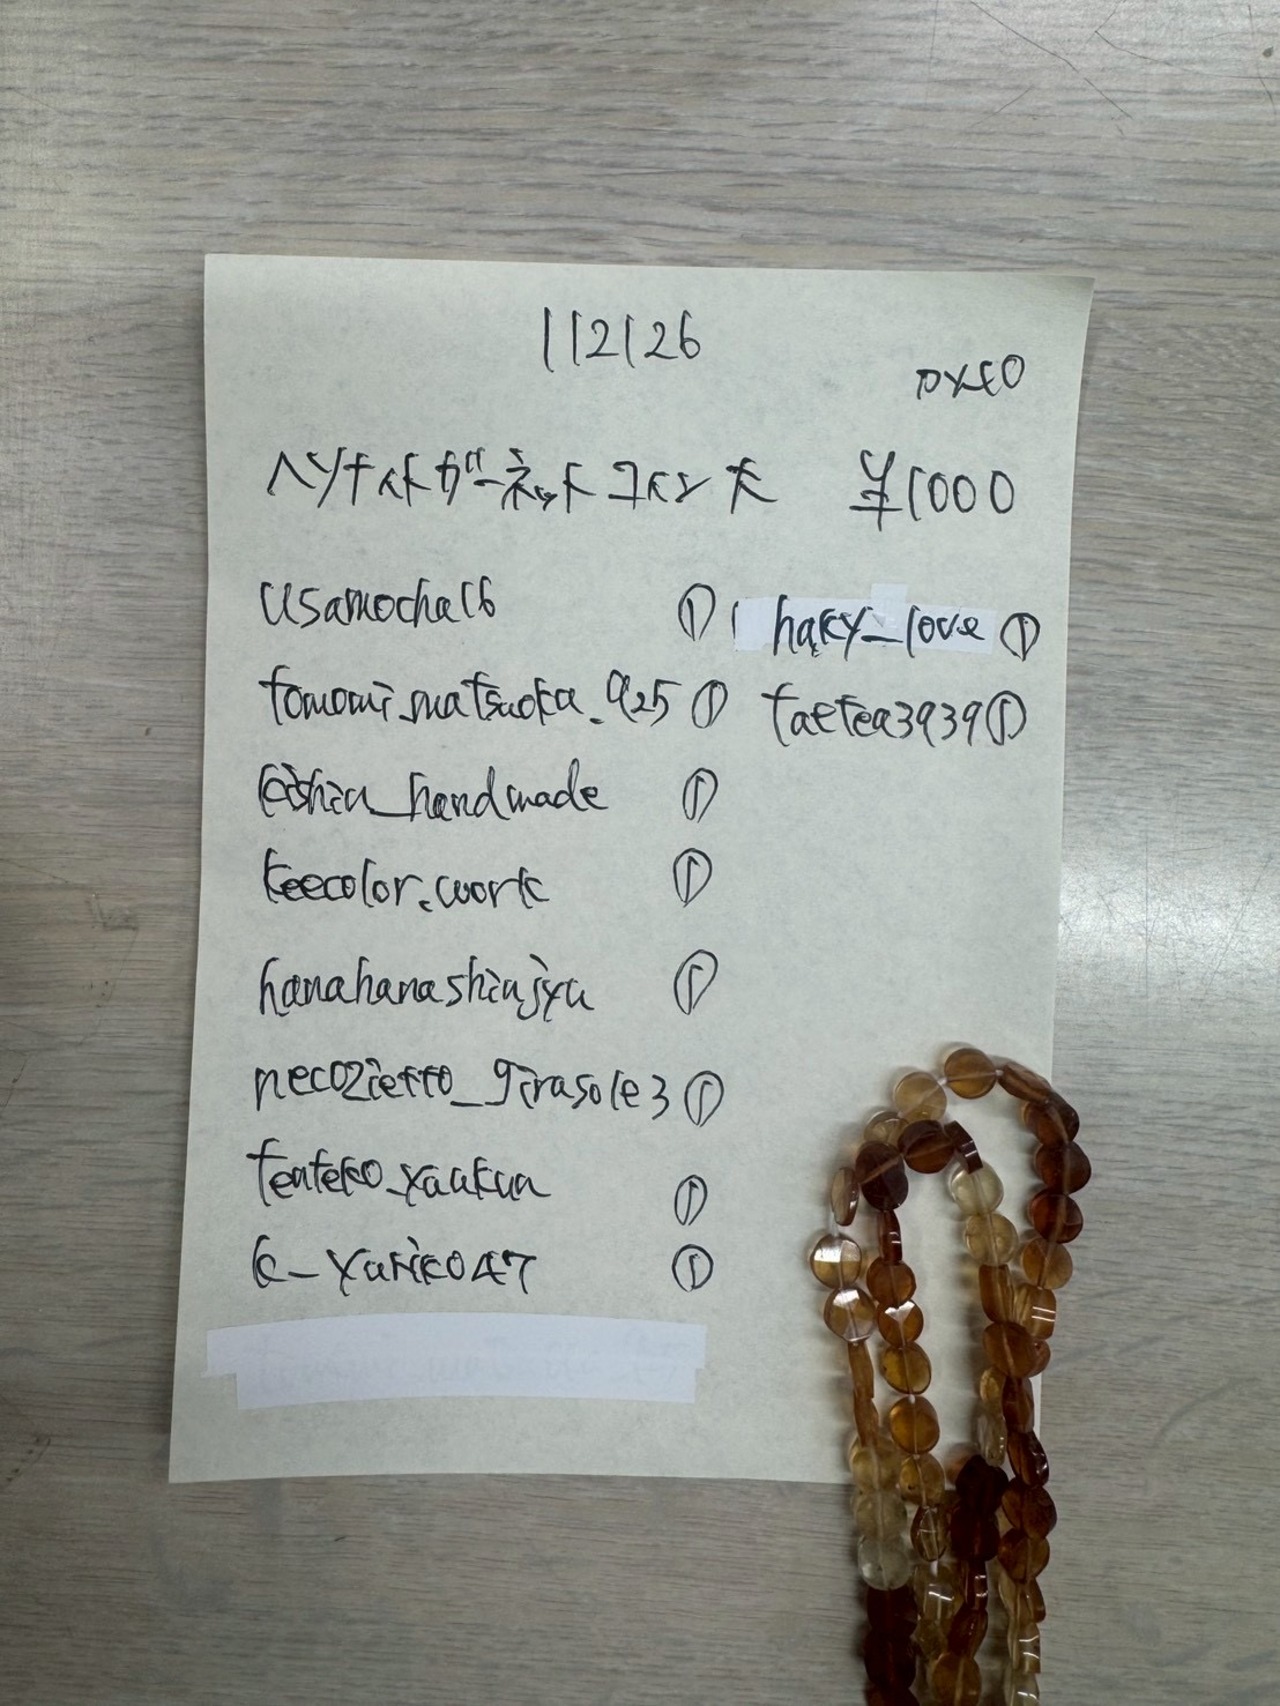 112126
ヘソナイトガーネットコイン大 ¥1000
usamocha16 ①
tomomi.matsuoka.925 ①
eishin_handmade ①
keecolor.work ①
hanahanashinjyu ①
necozietto_girasole3 ①
tenteko_yaukun ①
k_yuriko047 ①
haky_love ①
taetea3939 ①